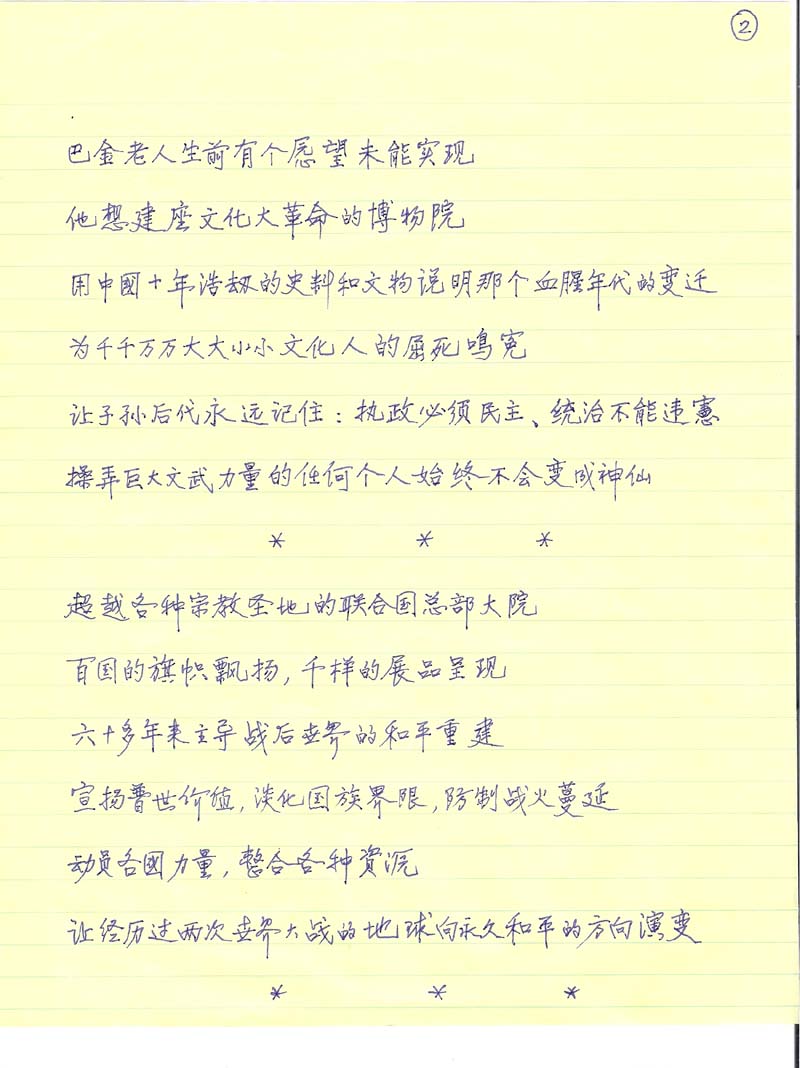 ②
巴金老人生前有个愿望未能实现
他想建座文化大革命的博物院
用中國十年浩劫的史料和文物说明那个血腥年代的变迁
为千千万万大大小小文化人的屈死鳴冤
让子孙后代永远记住：执政必须民主、统治不能违憲
操弄巨大文武力量的任何个人始终不会变成神仙
* * *
超越各种宗教圣地的联合国总部大院
百国的旗帜飘扬，千样的展品呈现
六十多年来主导战后世界的和平重建
宣扬普世价值，淡化国族界限，防制战火蔓延
动員各國力量，整合各种資源
让经历过两次世界大战的地球向永久和平的方向演变
* * *